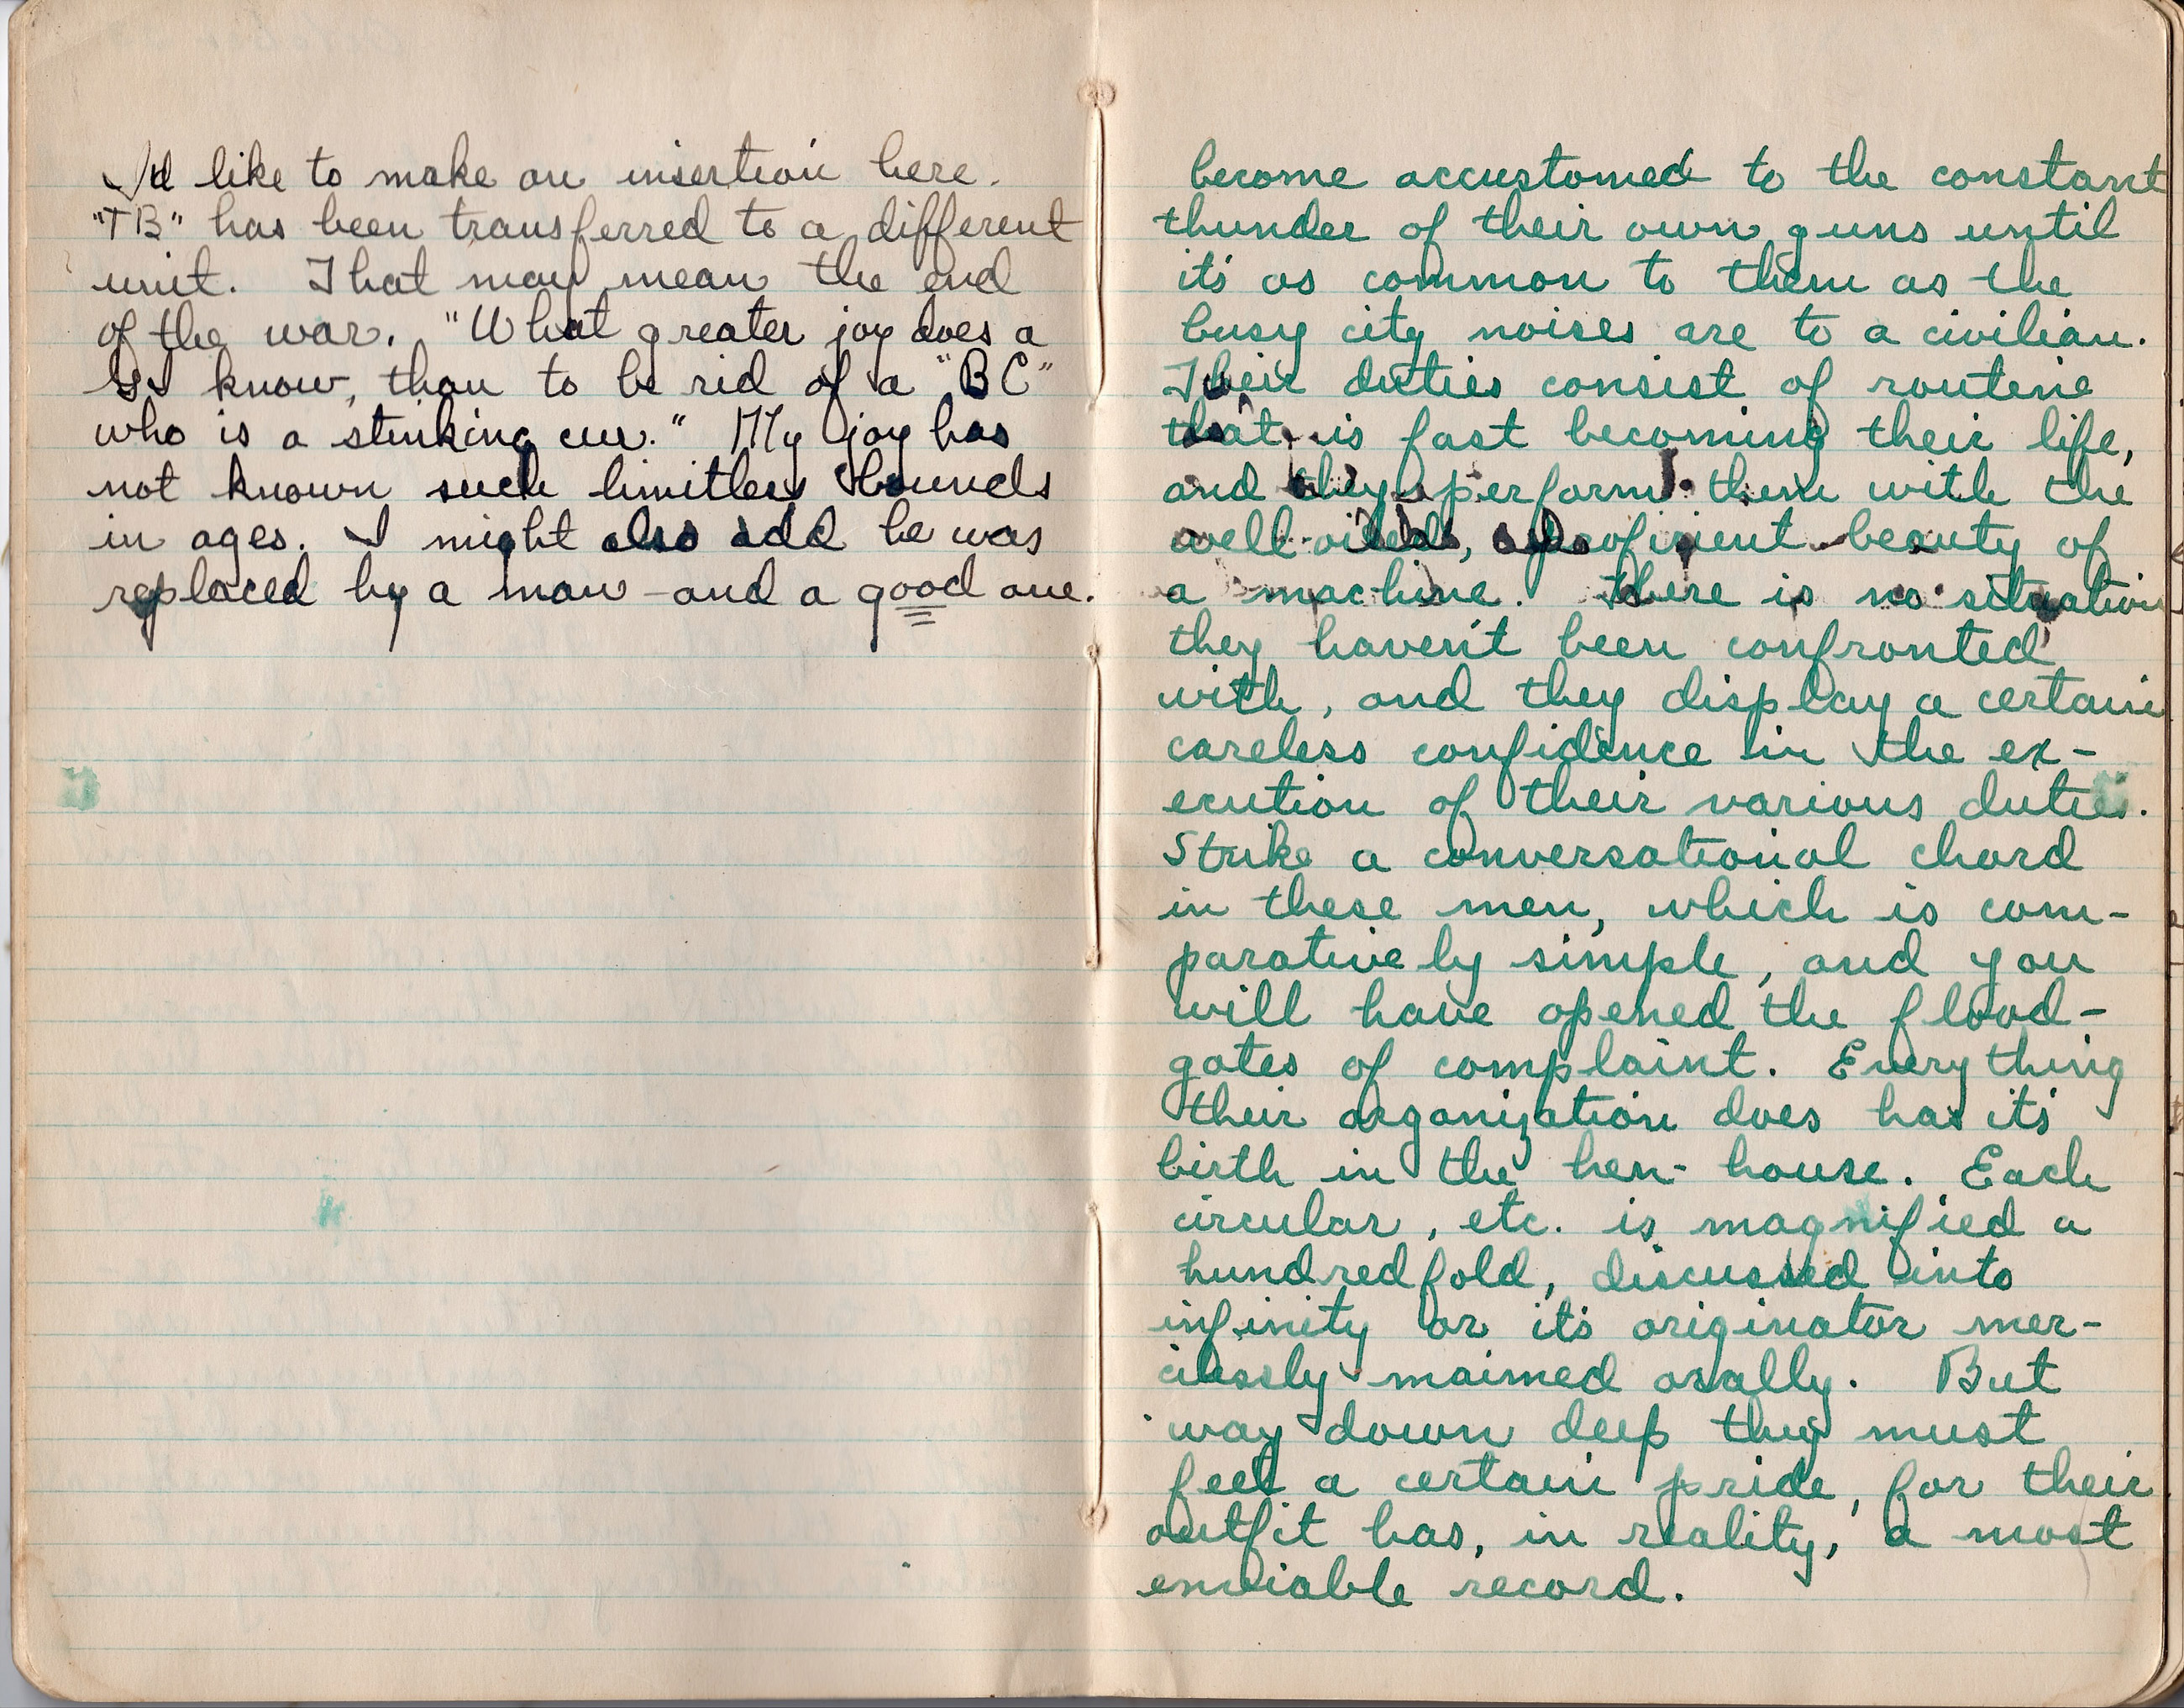 I'd like to make an insertion here.
"TB" has been transferred to a different
unit. That may mean the end
of the war. "What greater joy does a
GI know, than to be rid of a "BC"
who is a stinking cur." My joy has
not known such limitless bounds
in ages. I might also add he was
replaced by a man - and a good one.
become accustomed to the constant
thunder of their own guns until
it's as common to them as the
busy city noises are to a civilian.
Their duties consist of routine
that is fast becoming their life,
and they perform them with the
well-oiled, proficient beauty of
a machine. There is no situation
they haven't been confronted
with, and they display a certain
careless confidence in the ex-
ecution of their various duties.
Strike a conversational chord
in these men, which is com-
paratively simple, and you
will have opened the flood-
gates of complaint. Everything
their organization does has it's
birth in the hen-house. Each
circular, etc. is magnified a
hundredfold, discussed into
infinity or it's originator mer-
cilessly maimed orally. But
way down deep they must
feel a certain pride, for their
outfit has, in reality, a most
enviable record.